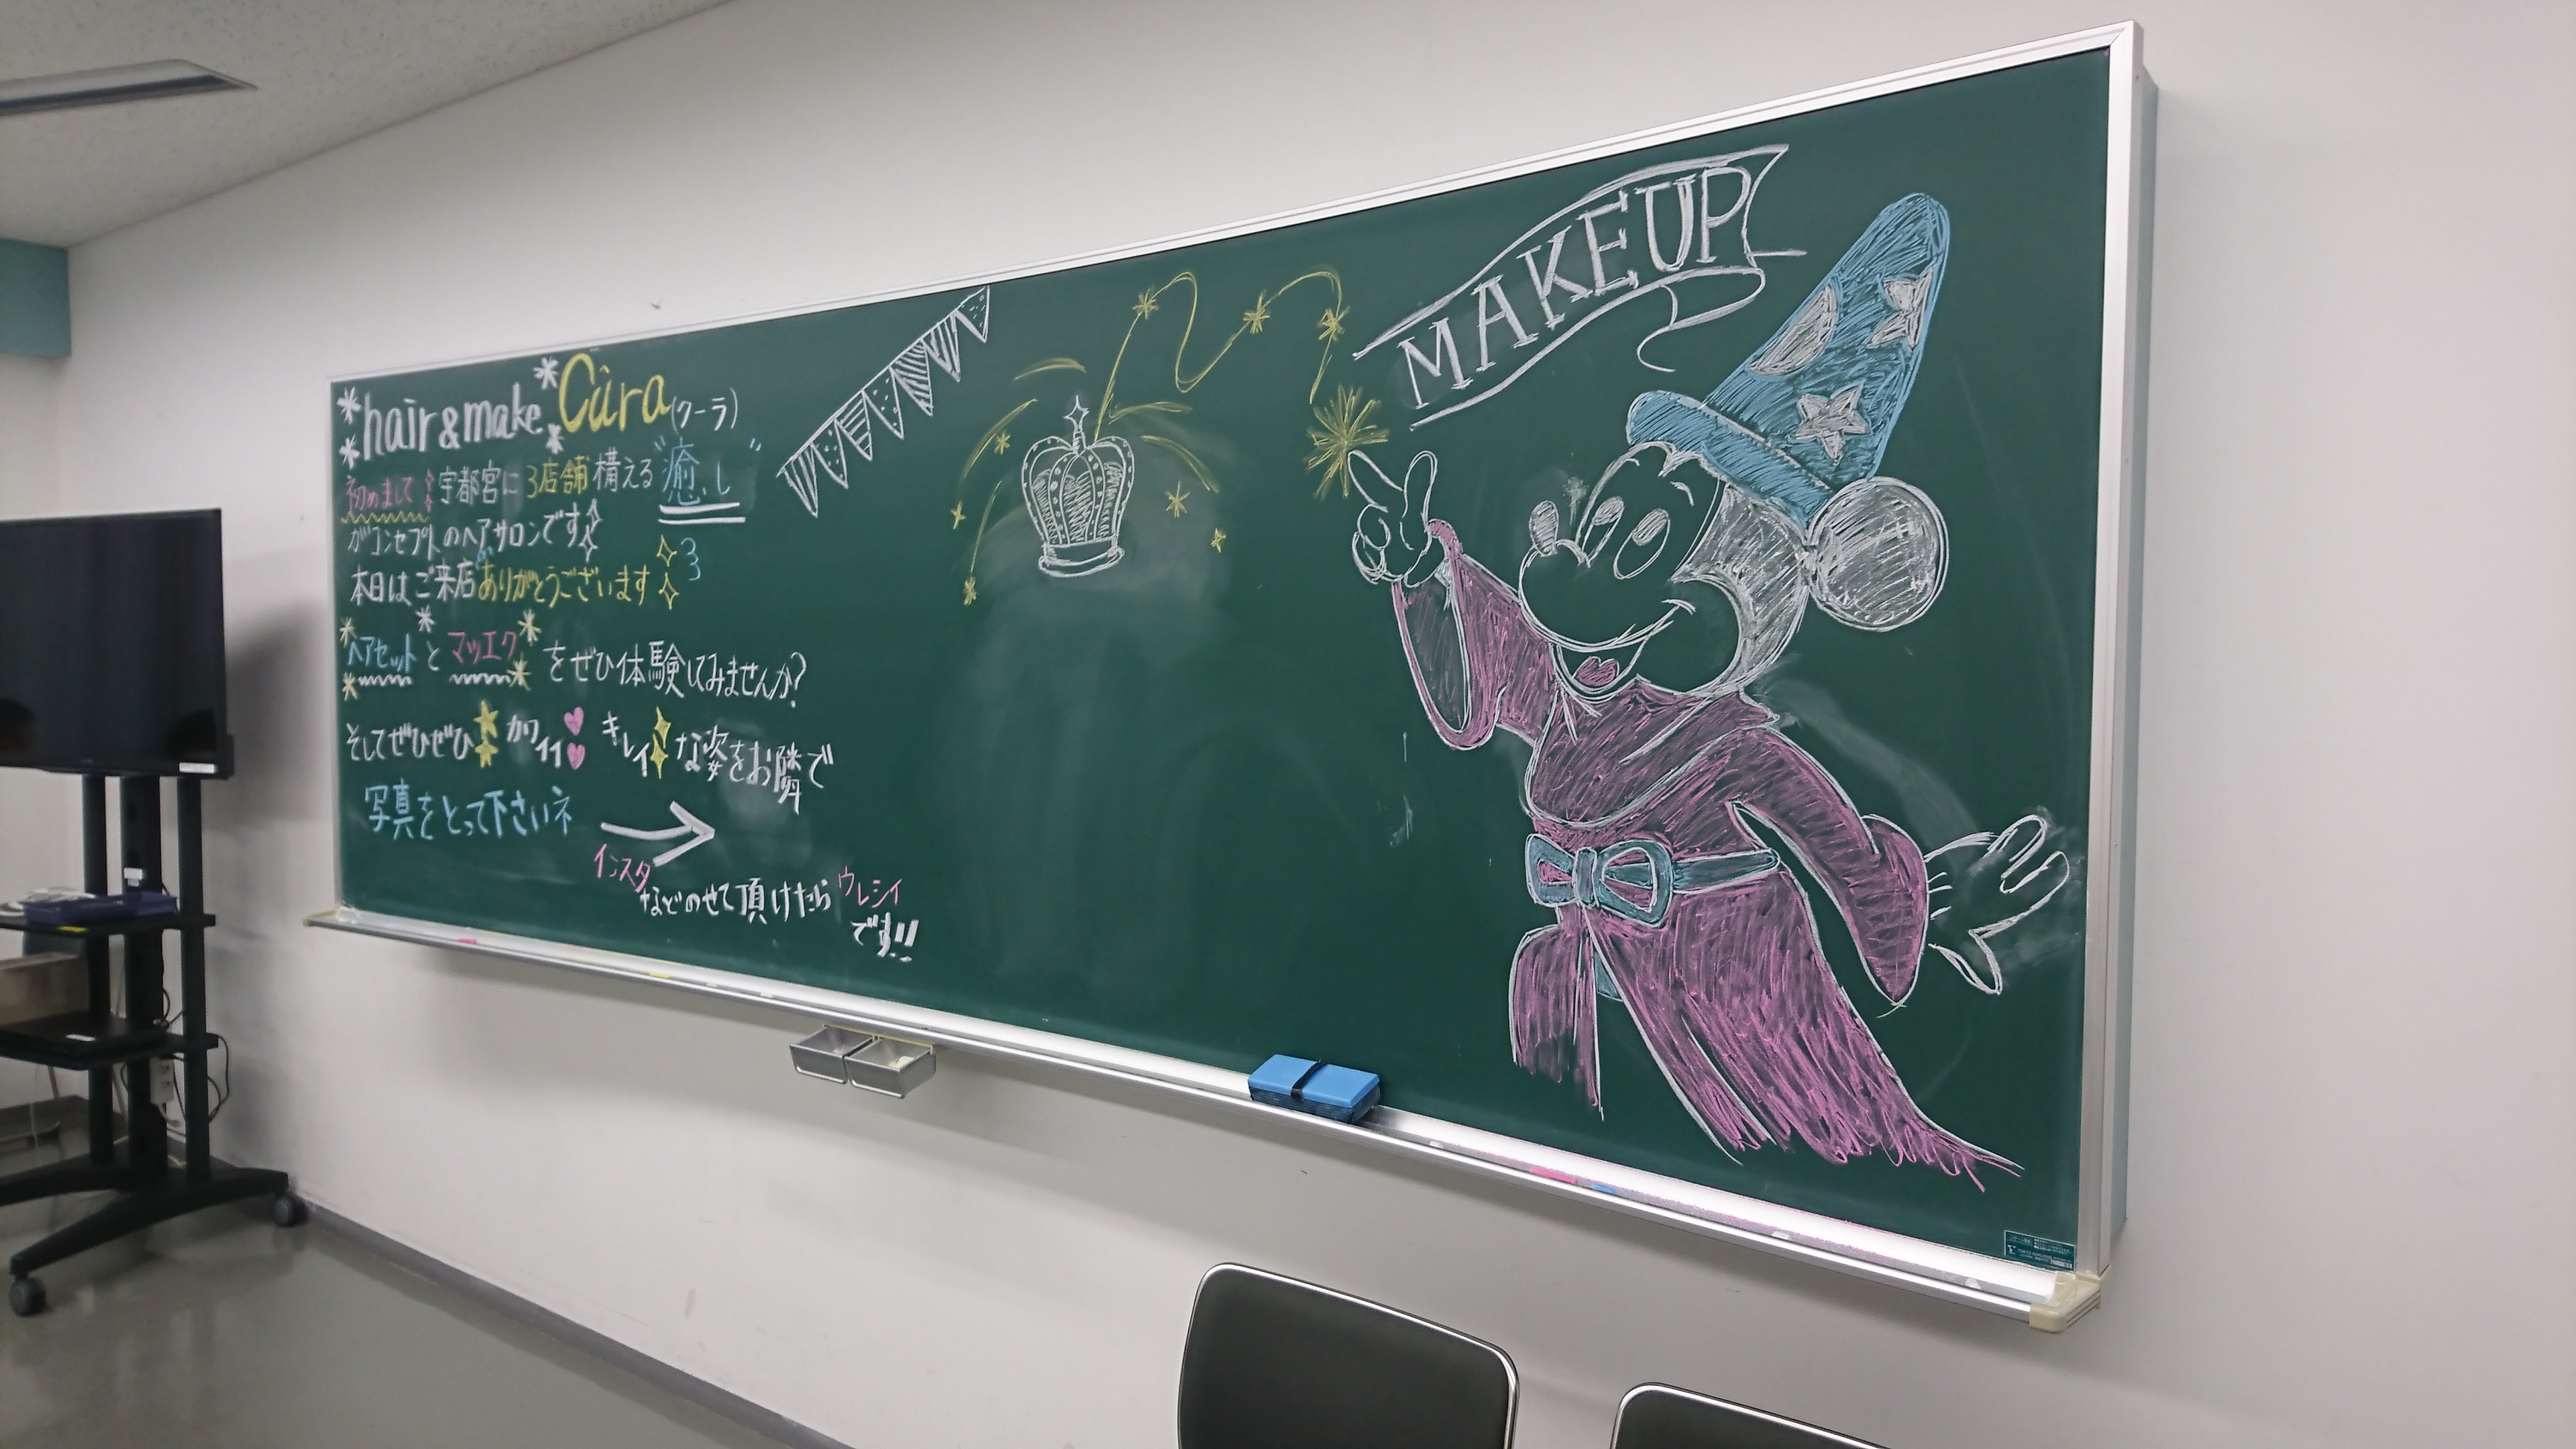 hair&make Cura(クーラ)
初めまして!宇都宮に3店舗構える"癒し"
がコンセプトのヘアサロンです
本日はご来店ありがとうございます
ヘアセットとマツエクをぜひ体験してみませんか?
そしてぜひぜひカワイイ キレイな姿をお隣で
写真をとって下さいネ
インスタなどのせて頂けたらウレシイ
です!!
MAKEUP